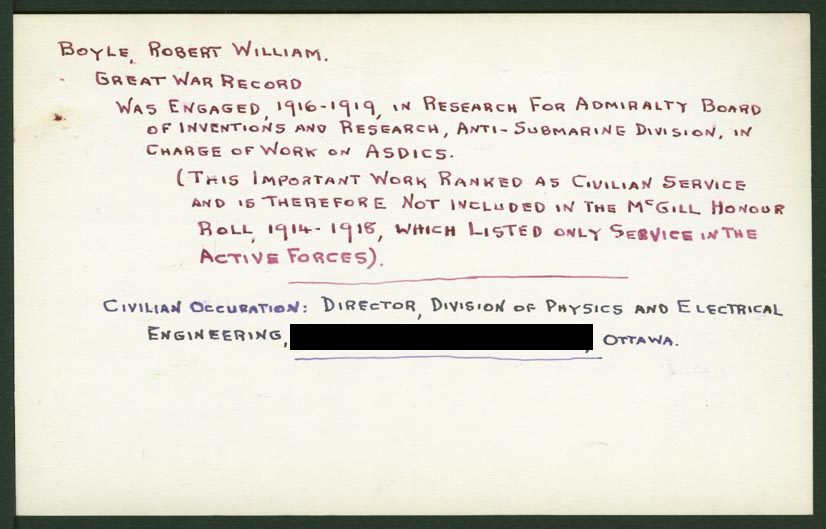 BOYLE, ROBERT WILLIAM.
GREAT WAR RECORD
WAS ENGAGED, 1916-1919, IN RESEARCH FOR ADMIRALTY BOARD
OF INVENTIONS AND RESEARCH, ANTI-SUBMARINE DIVISION, IN
CHARGE OF WORK ON ASDICS.
(THIS IMPORTANT WORK RANKED AS CIVILIAN SERVICE
AND IS THEREFORE NOT INCLUDED IN THE McGILL HONOUR
ROLL, 1914-1918, WHICH LISTED ONLY SERVICE IN THE
ACTIVE FORCES).
CIVILIAN OCCUPATION: DIRECTOR, DIVISION OF PHYSICS AND ELECTRICAL
ENGINEERING, , OTTAWA.